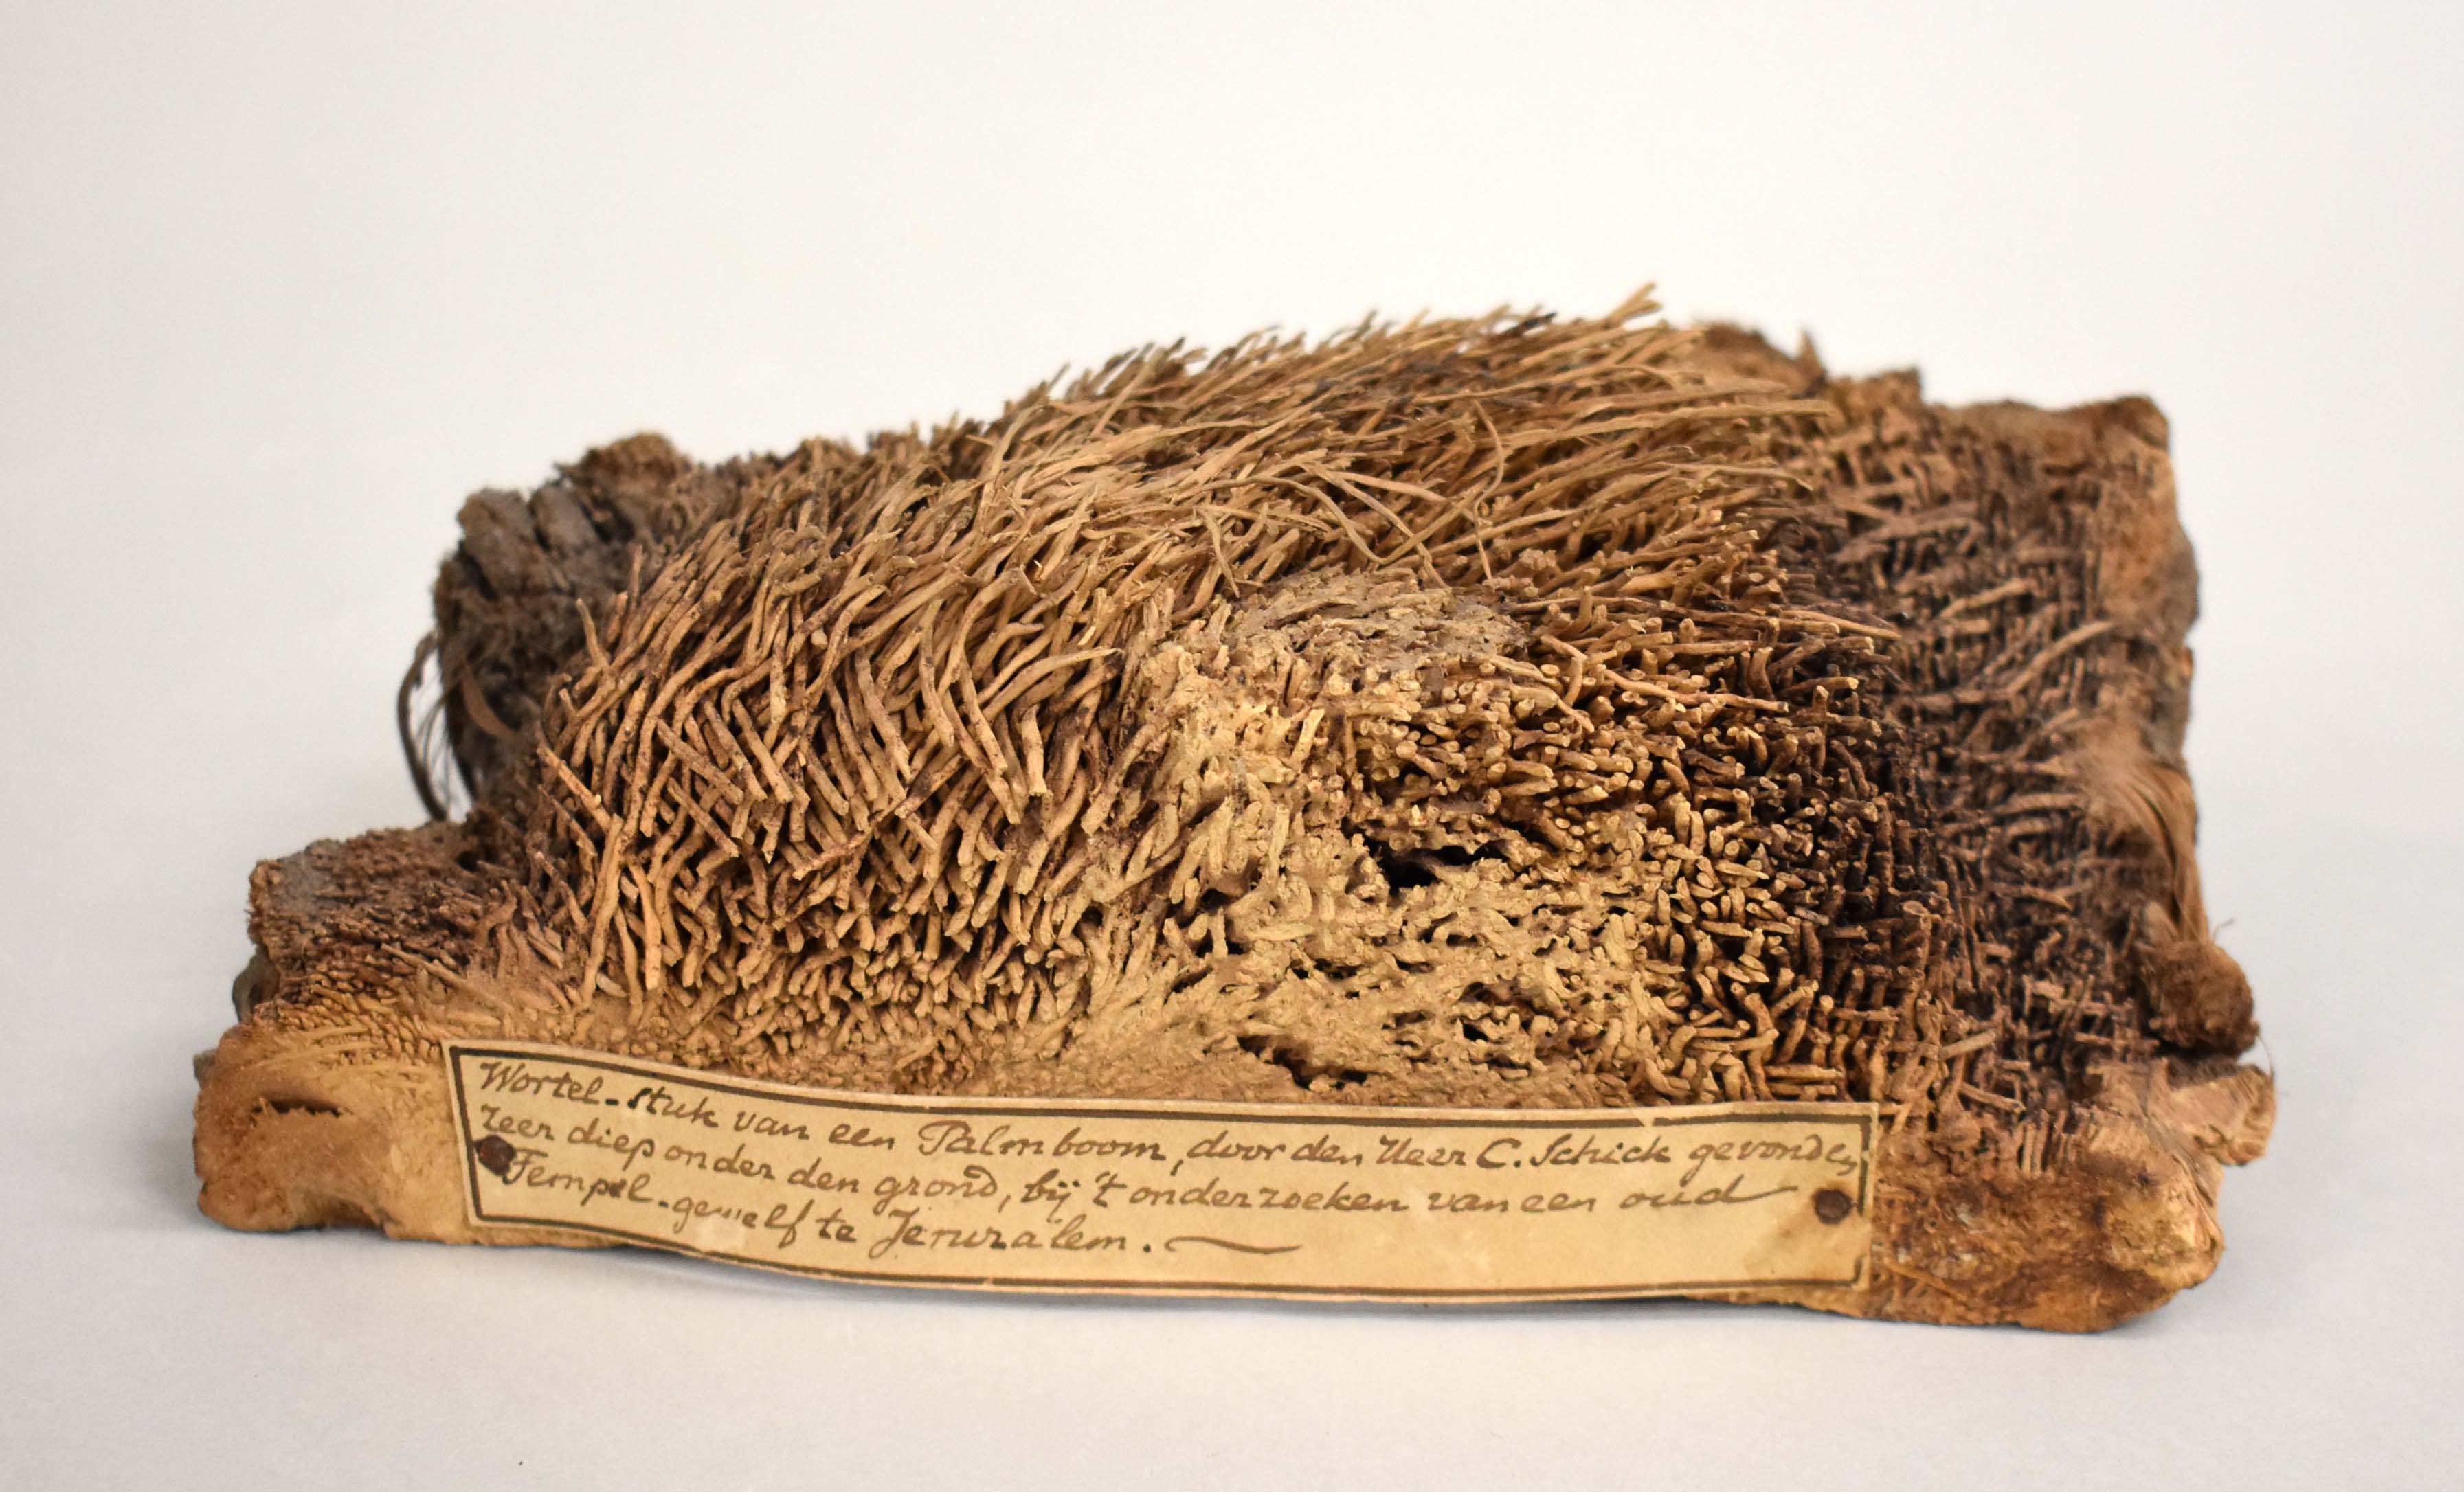 Wortel-stuk van een Palmboom, door den Heer C. Schick gevonden,
zeer diep onder den grond, bij 't onderzoeken van een oud
Tempel-gewelf te Jeruzalem.